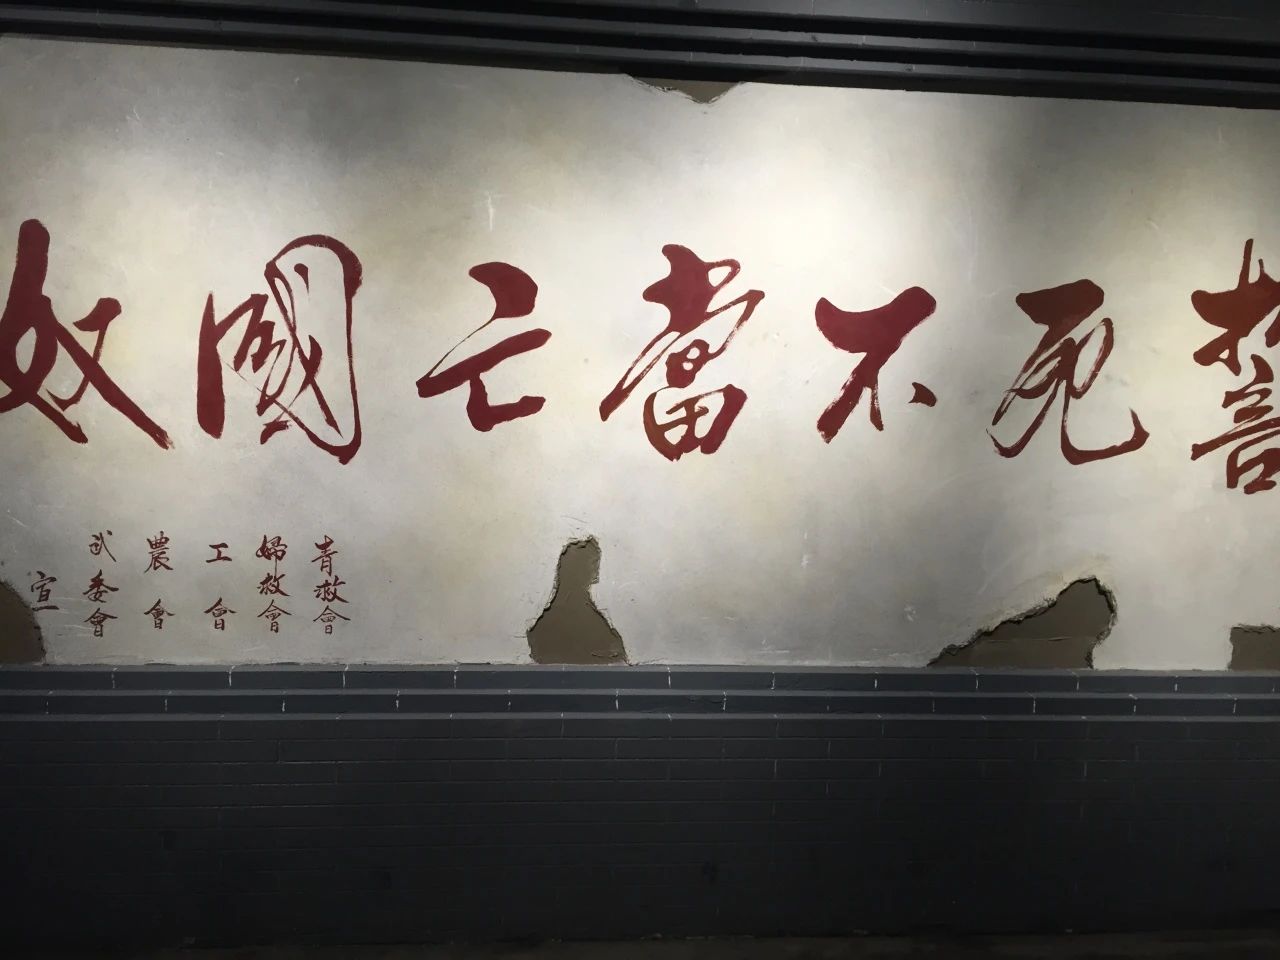 誓死不當亡國奴
青救會
婦救會
工會
農會
武委會
宣